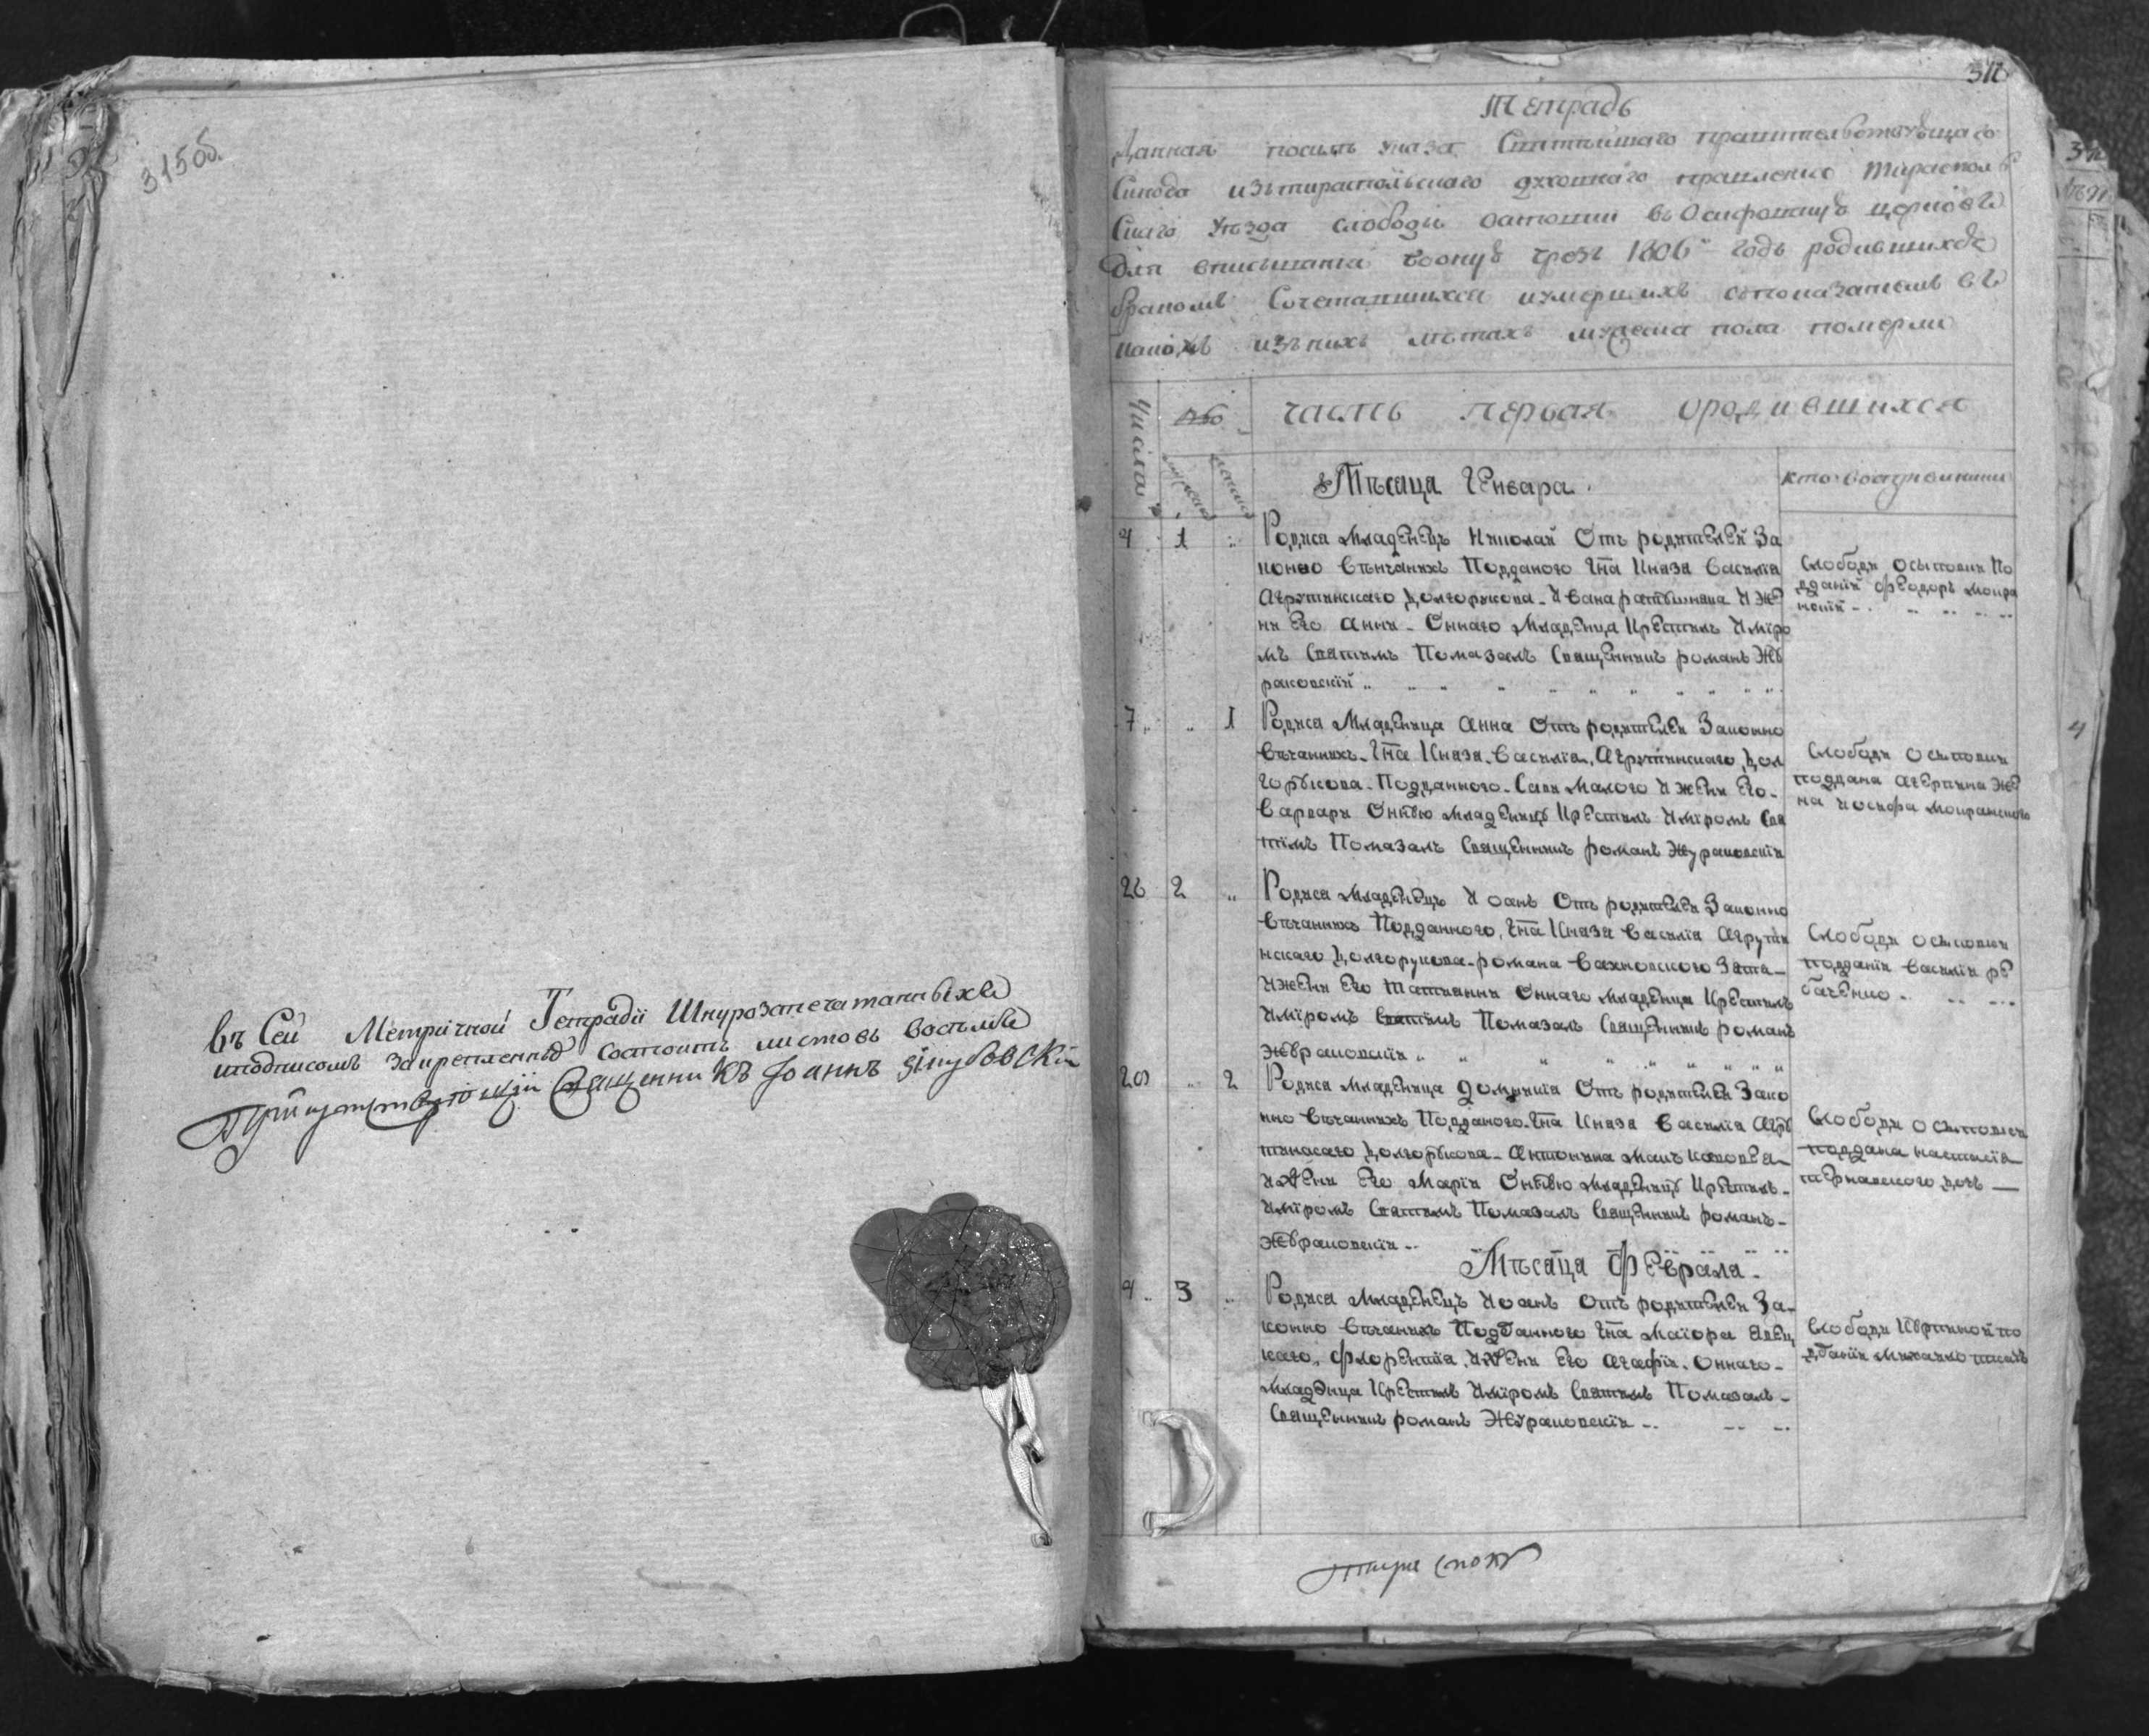 315об.
въ Сей Метричной Тетрадіи Шнурозапечатанныхъ
иподписомъ закрепленныхъ состоитъ листовъ восемь
Присутствующій Священникъ Іоаннъ
Тетрадь
Данная посилѣ указа Святѣйшаго правительствующаго
Синода изътираспольскаго духовнаго правленія Тирасполь
Скаго уѣзда слободы въ церковь
для вписыванія воону чрезъ 1806 годъ родившихся
бракомъ Сочетавшихся иумершихъ споказаніемъ въ
какихъ изънихъ лѣтахъ мужеска пола померли
Числа
часть первая ородившихся
Мѣсаца Генвара
кто воспріемники
4 1 Родиса Младенецъ Николай Отъ родителей За
конно Вѣнчаныхъ Подданого Гна Кназа Василіа
Аргутинскаго Долгорукова Ивана И же
ни Его Анни Оннаго Младенца Крестилъ Иміро
мъ Сватимъ Помазалъ Сващенникъ романъ Жу
раковскій
Слободи По
дданій Федоръ Мокра
нскій
7 1 Родиса Младеница Анна Отъ родителей Законно
Вѣчанихъ Гна Кназа Василіа Аргутинскаго Дол
горукова Подданного Сави Малого И жени Его
Варвари Онную младеницу Крестилъ Иміромъ Сва
тімъ Помазалъ Сващенникъ романъ Жураковскій
Слободи
поддана Агерпина же
на Иосифа Мокранского
26 2 Родиса Младенецъ Иоанъ Отъ родителей Законно
Вѣчанихъ Подданного Гна Кназа Василіа Аргути
нскаго Долгорукова романа Вахновского Зата
Ижени Его Татианни Оннаго младенца Крестилъ
Иміромъ Сватімъ Помазалъ Сващенникъ романъ
Жураковскій
Слободи
подданій Василій рѣ
баченко
2 Родиса Младеница Домникіа Отъ родителей Зако
нно Вѣчаннихъ Подданого Гна Кназа Василіа Аргу
тинскаго Долгорукова Антонина
Ижени Его Маріи Онную младеницу Крестилъ
Иміромъ Сватимъ Помазалъ Сващенникъ романъ
Жураковскій
Слободи
поддана настасіа
дочь
Мѣсаца Феврала
4 3 Родиса Младенецъ Иоанъ Отъ родителей За
конно Вѣчанихъ Подданного Гна Маіора
каго Флорентіа Ижени Его Агафіи Оннаго
Младенца Крестилъ Иміромъ Сватимъ Помазалъ
Сващенникъ романъ Жураковскій
Слободи по
дданій Михайло